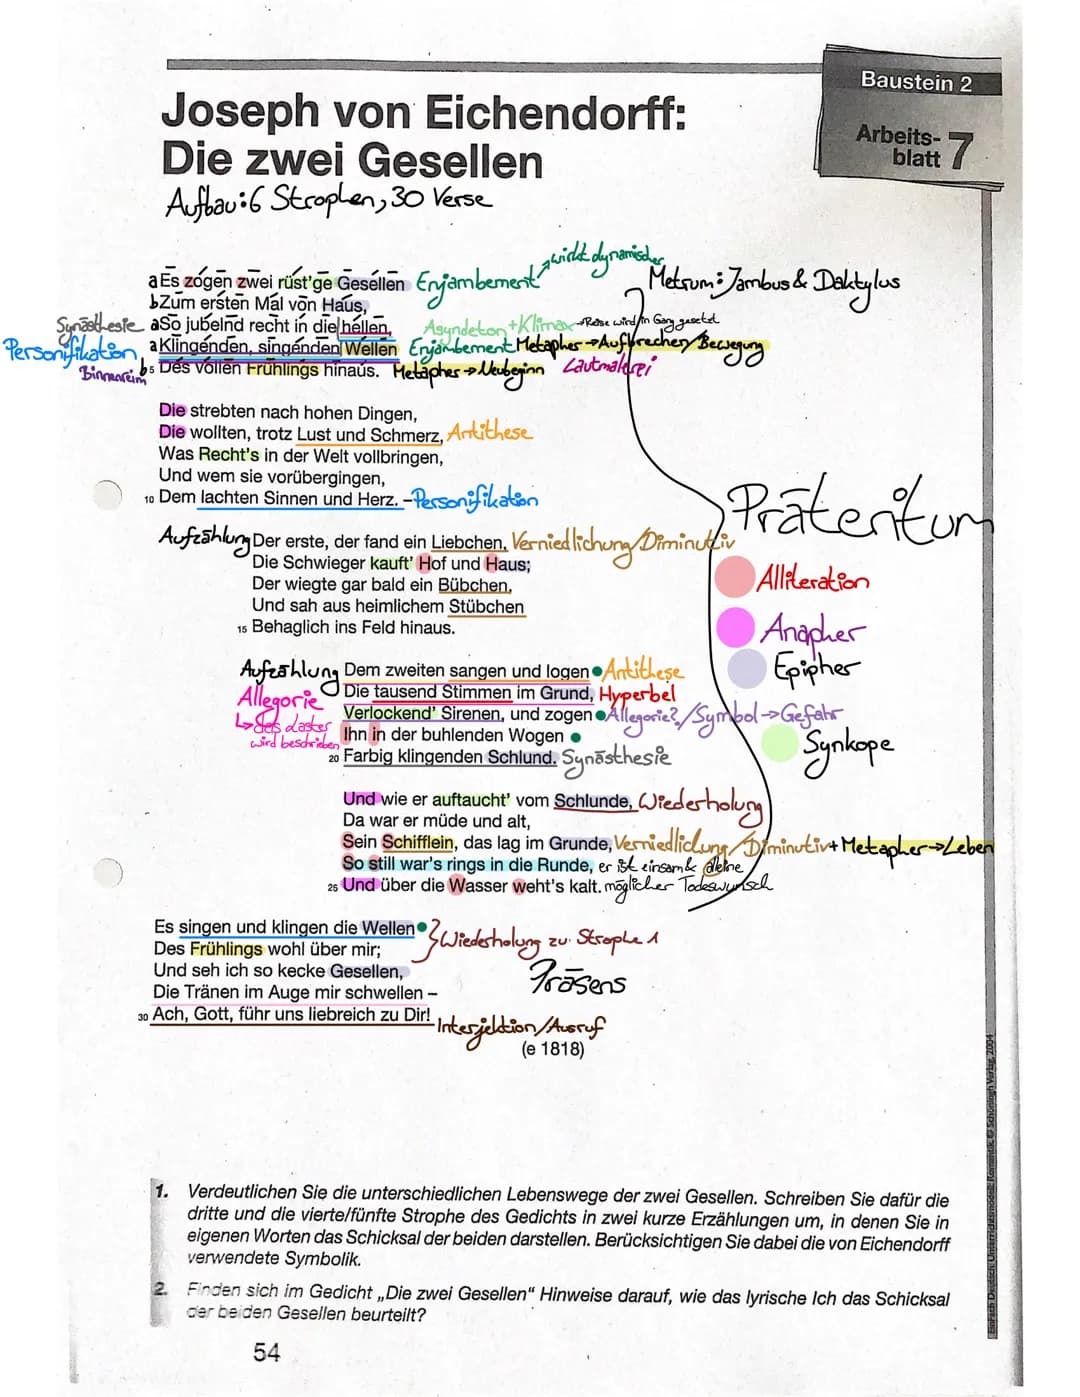 Baustein 2
Arbeits-
blatt 7
Joseph von Eichendorff:
Die zwei Gesellen
Aufbau: 6 Strophen, 30 Verse
wirkt dynamischer
a Es zogen zwei rüst'ge Gesellen Enjambement Metrum: Jambus & Daktylus
b Zum ersten Mal von Haus,
Synästhesie a So jubelnd recht in die hellen, Asyndeton + Klimax → Reise wird in Gang gesetzt
Personifikation a Klingenden, singenden Wellen Enjambement Metapher → Aufbrechen/Bewegung
Binnenreim b 5 Des vollen Frühlings hinaus. Metapher → Neubeginn Lautmalerei
Die strebten nach hohen Dingen,
Die wollten, trotz Lust und Schmerz, Antithese
Was Recht's in der Welt vollbringen,
Und wem sie vorübergingen,
10 Dem lachten Sinnen und Herz. – Personifikation
Präteritum
Aufzählung Der erste, der fand ein Liebchen, Verniedlichung/Diminutiv
Die Schwieger kauft' Hof und Haus;
Der wiegte gar bald ein Bübchen,
Und sah aus heimlichem Stübchen
15 Behaglich ins Feld hinaus.
Alliteration
Anapher
Epipher
Synkope
Aufzählung Dem zweiten sangen und logen Antithese
Allegorie Die tausend Stimmen im Grund, Hyperbel
Verlockend' Sirenen, und zogen Allegorie?/Symbol → Gefahr
↳ das Laster Ihn in der buhlenden Wogen
wird beschrieben
20 Farbig klingenden Schlund. Synästhesie
Und wie er auftaucht' vom Schlunde, Wiederholung
Da war er müde und alt,
Sein Schifflein, das lag im Grunde, Verniedlichung/Diminutiv + Metapher → Leben
So still war's rings in die Runde, er ist einsam & alleine
25 Und über die Wasser weht's kalt. möglicher Todeswunsch
Es singen und klingen die Wellen
Des Frühlings wohl über mir; Wiederholung zu Strophe 1
Und seh ich so kecke Gesellen, Präsens
Die Tränen im Auge mir schwellen –
30 Ach, Gott, führ uns liebreich zu Dir! Interjektion/Ausruf
(e 1818)
1. Verdeutlichen Sie die unterschiedlichen Lebenswege der zwei Gesellen. Schreiben Sie dafür die
dritte und die vierte/fünfte Strophe des Gedichts in zwei kurze Erzählungen um, in denen Sie in
eigenen Worten das Schicksal der beiden darstellen. Berücksichtigen Sie dabei die von Eichendorff
verwendete Symbolik.
2. Finden sich im Gedicht „Die zwei Gesellen" Hinweise darauf, wie das lyrische Ich das Schicksal
der beiden Gesellen beurteilt?
54
EinFach Deutsch, Unterrichtsmodell: Romantik, © Schöningh Verlag, 2004